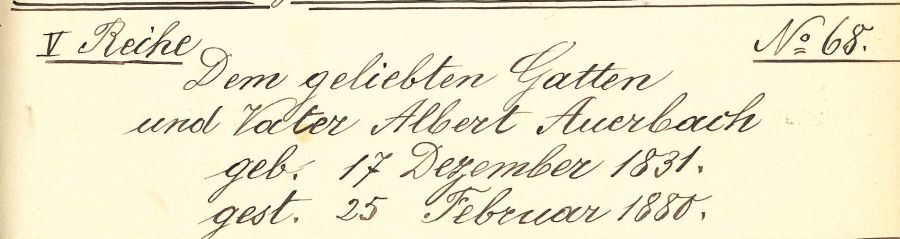 V Reihe
No 68.
Dem geliebten Gatten
und Vater Albert Auerbach
geb. 17 Dezember 1831.
gest. 25 Februar 1880.